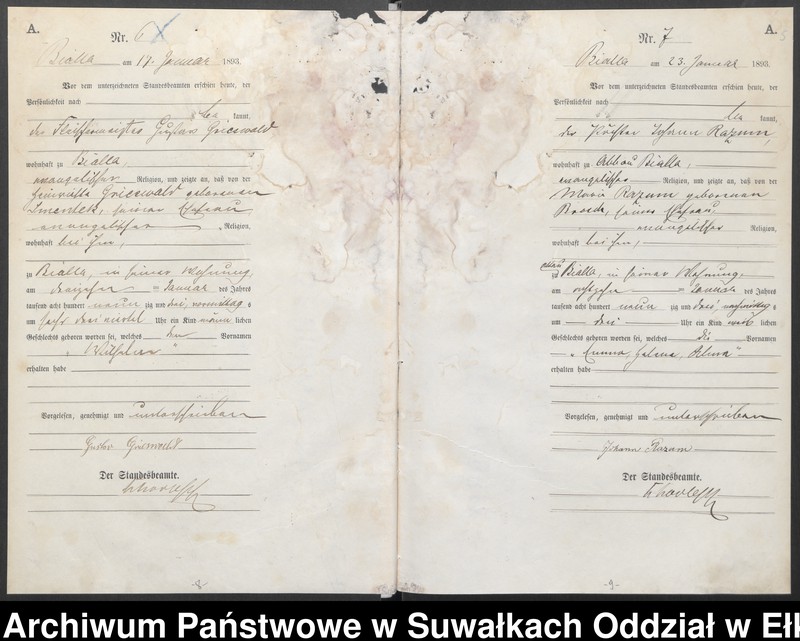 A.
Nr. 6
Bialla am 17. Januar 1893.
Vor dem unterzeichneten Standesbeamten erschien heute, der
Persönlichkeit nach
be kannt,
der Gustav Grieswald
wohnhaft zu Bialla,
evangelischer Religion, und zeigte an, daß von der
Grieswald geborenen
seiner Ehefrau
evangelischer Religion,
wohnhaft bei ihm,
zu Bialla, in seiner Wohnung,
am dreizehn ten Januar des Jahres
tausend acht hundert neun zig und drei, vormittags
um drei viertel Uhr ein Kind männ lichen
Geschlechts geboren worden sei, welches den Vornamen
„Wilhelm“
erhalten habe
Vorgelesen, genehmigt und unterschrieben
Gustav Grieswald
Der Standesbeamte.
-8-
A.
Nr. 7
Bialla am 23. Januar 1893.
Vor dem unterzeichneten Standesbeamten erschien heute, der
Persönlichkeit nach
be kannt,
der Johann Razum,
wohnhaft zu Abbau Bialla,
evangelischer Religion, und zeigte an, daß von der
Marie Razum geborenen
seiner Ehefrau
evangelischer Religion,
wohnhaft bei ihm,
Abbau
zu Bialla, in seiner Wohnung
am ten Januar des Jahres
tausend acht hundert neun zig und drei, nachmittags
um drei Uhr ein Kind weib lichen
Geschlechts geboren worden sei, welches die Vornamen
„Emma Helene Alma“
erhalten habe
Vorgelesen, genehmigt und unterschrieben
Johann Razum
Der Standesbeamte.
-9-
Archiwum Państwowe w Suwałkach Oddział w Eł